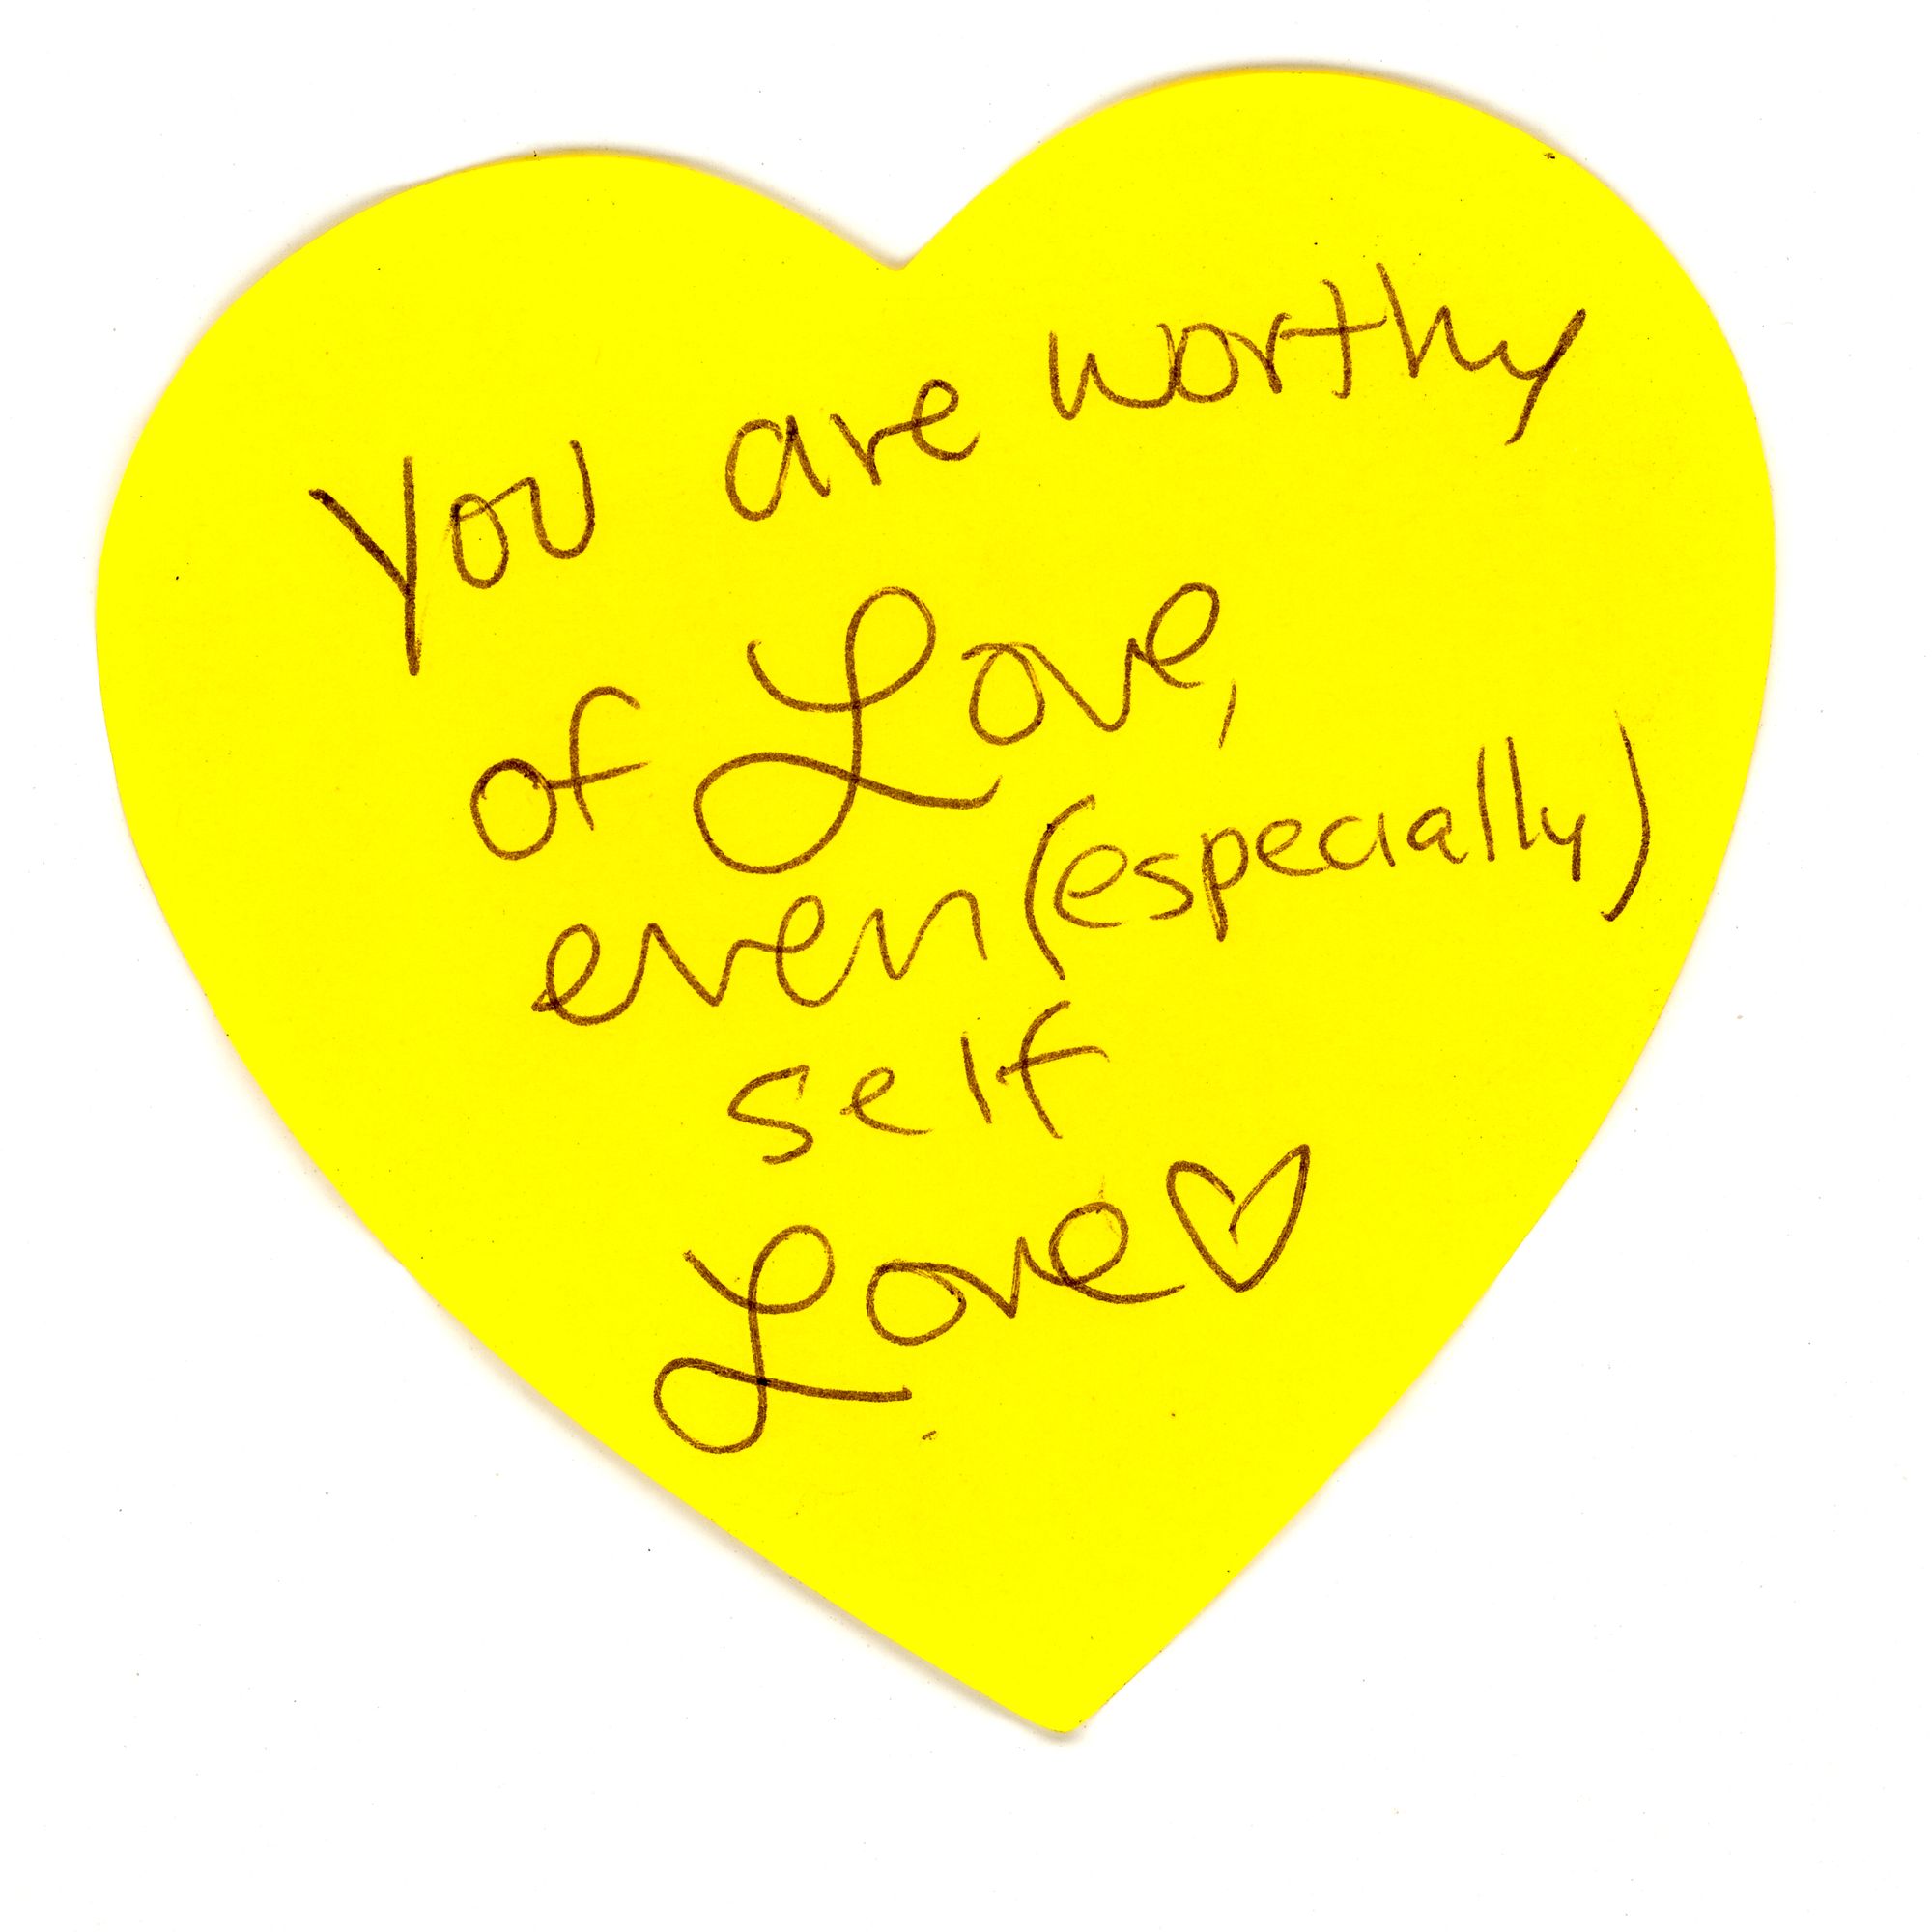 You are worthy
of Love,
even (especially)
self
Love ♡